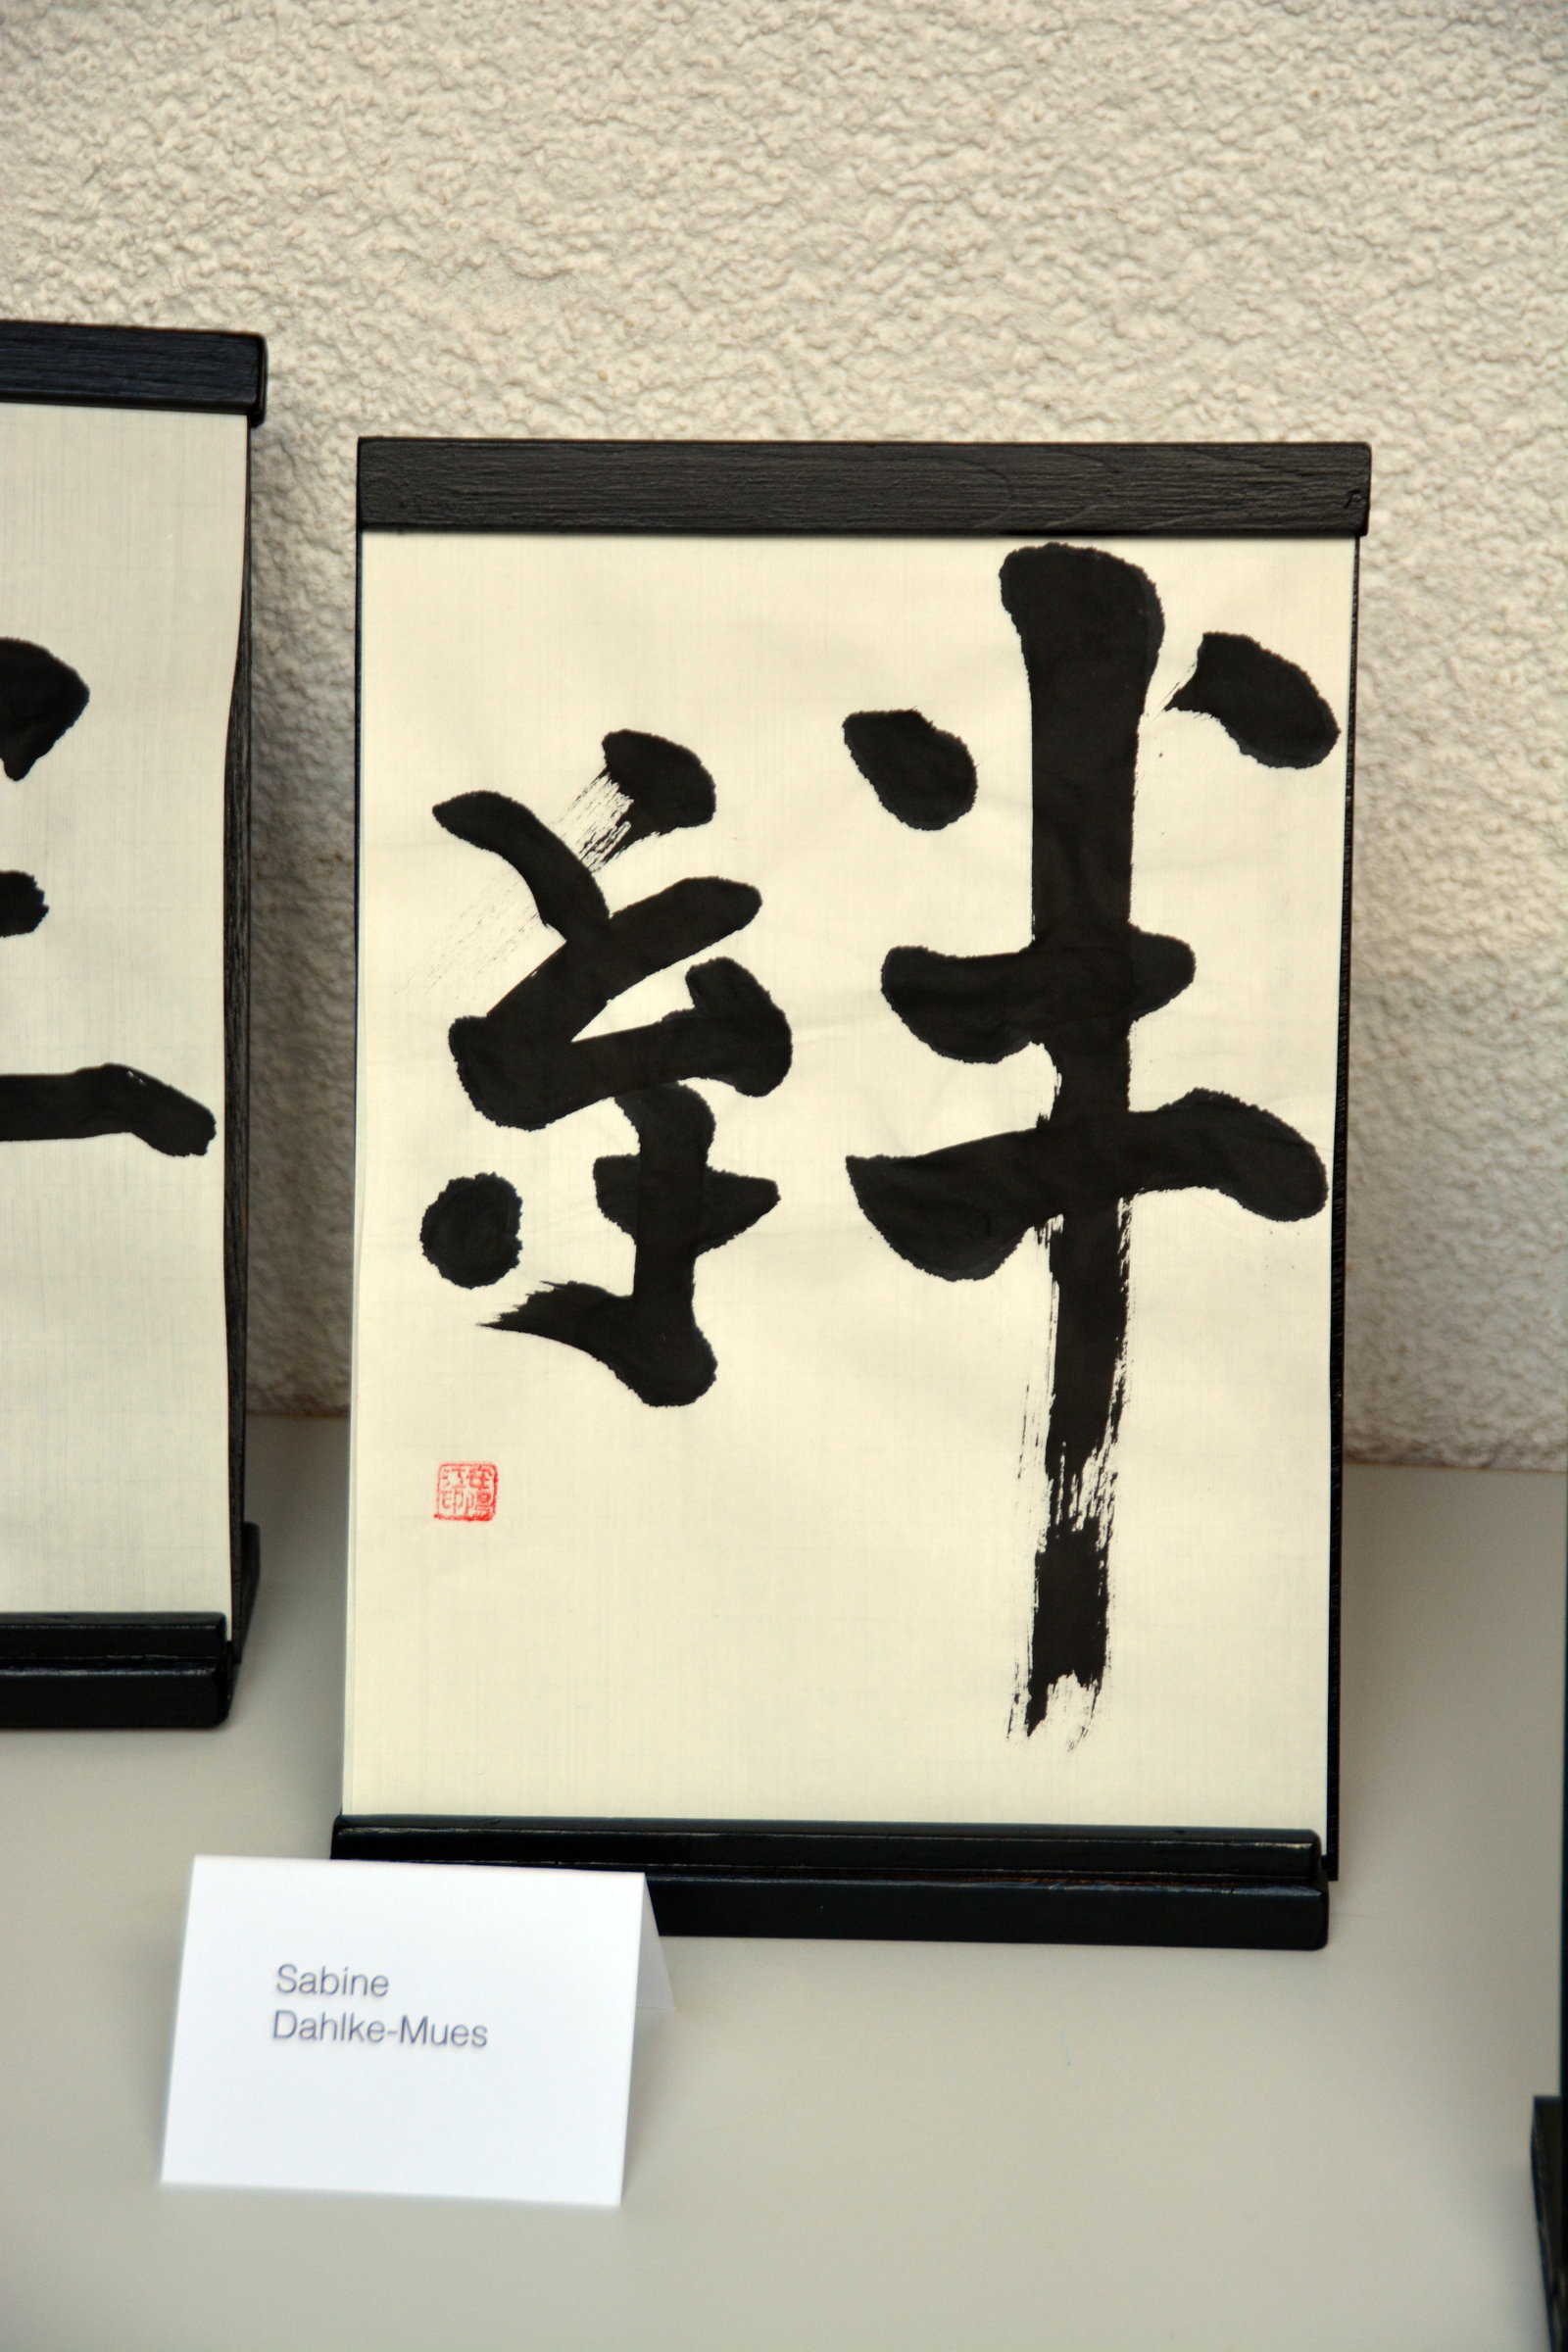 絆
Sabine
Dahlke-Mues